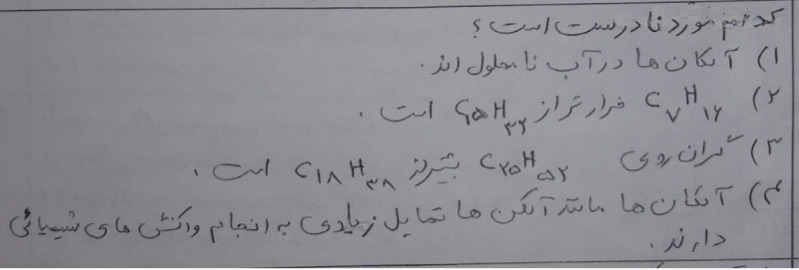 کدام مورد نادرست است؟
۱) آلکان ها در آب نامحلول اند.
۲) C۷H۱۶ فرارتر از C۱۵H۳۲ است.
۳) گران روی C۲۵H۵۲ بیشتر از C۱۸H۳۸ است.
۴) آلکان ها مانند آلکن ها تمایل زیادی به انجام واکنش های شیمیائی
دارند.